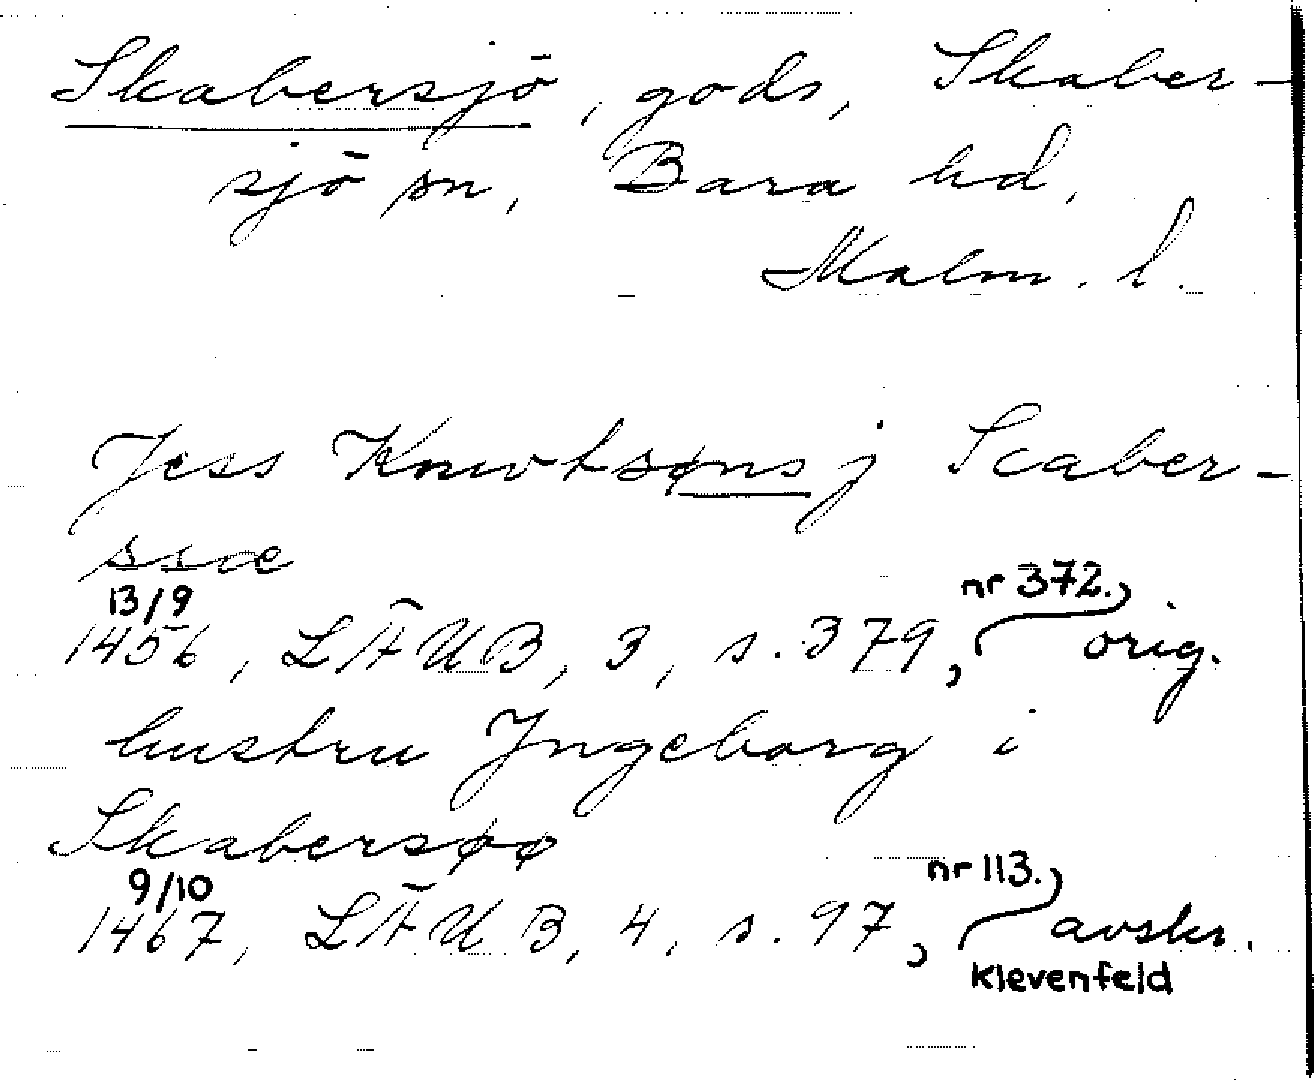 Skabersjö, gods, Skaber-
sjö sn, Bara hd,
Malm. l.
Jess Knwtsøns j Scaber-
ssæ
13/9 nr 372.
1456, LÄUB, 3, s. 379, orig.
hustru Jngeborg i
Skabersøø
9/10 nr 113.
1467, LÄUB, 4, s. 97, avskr.
Klevenfeld